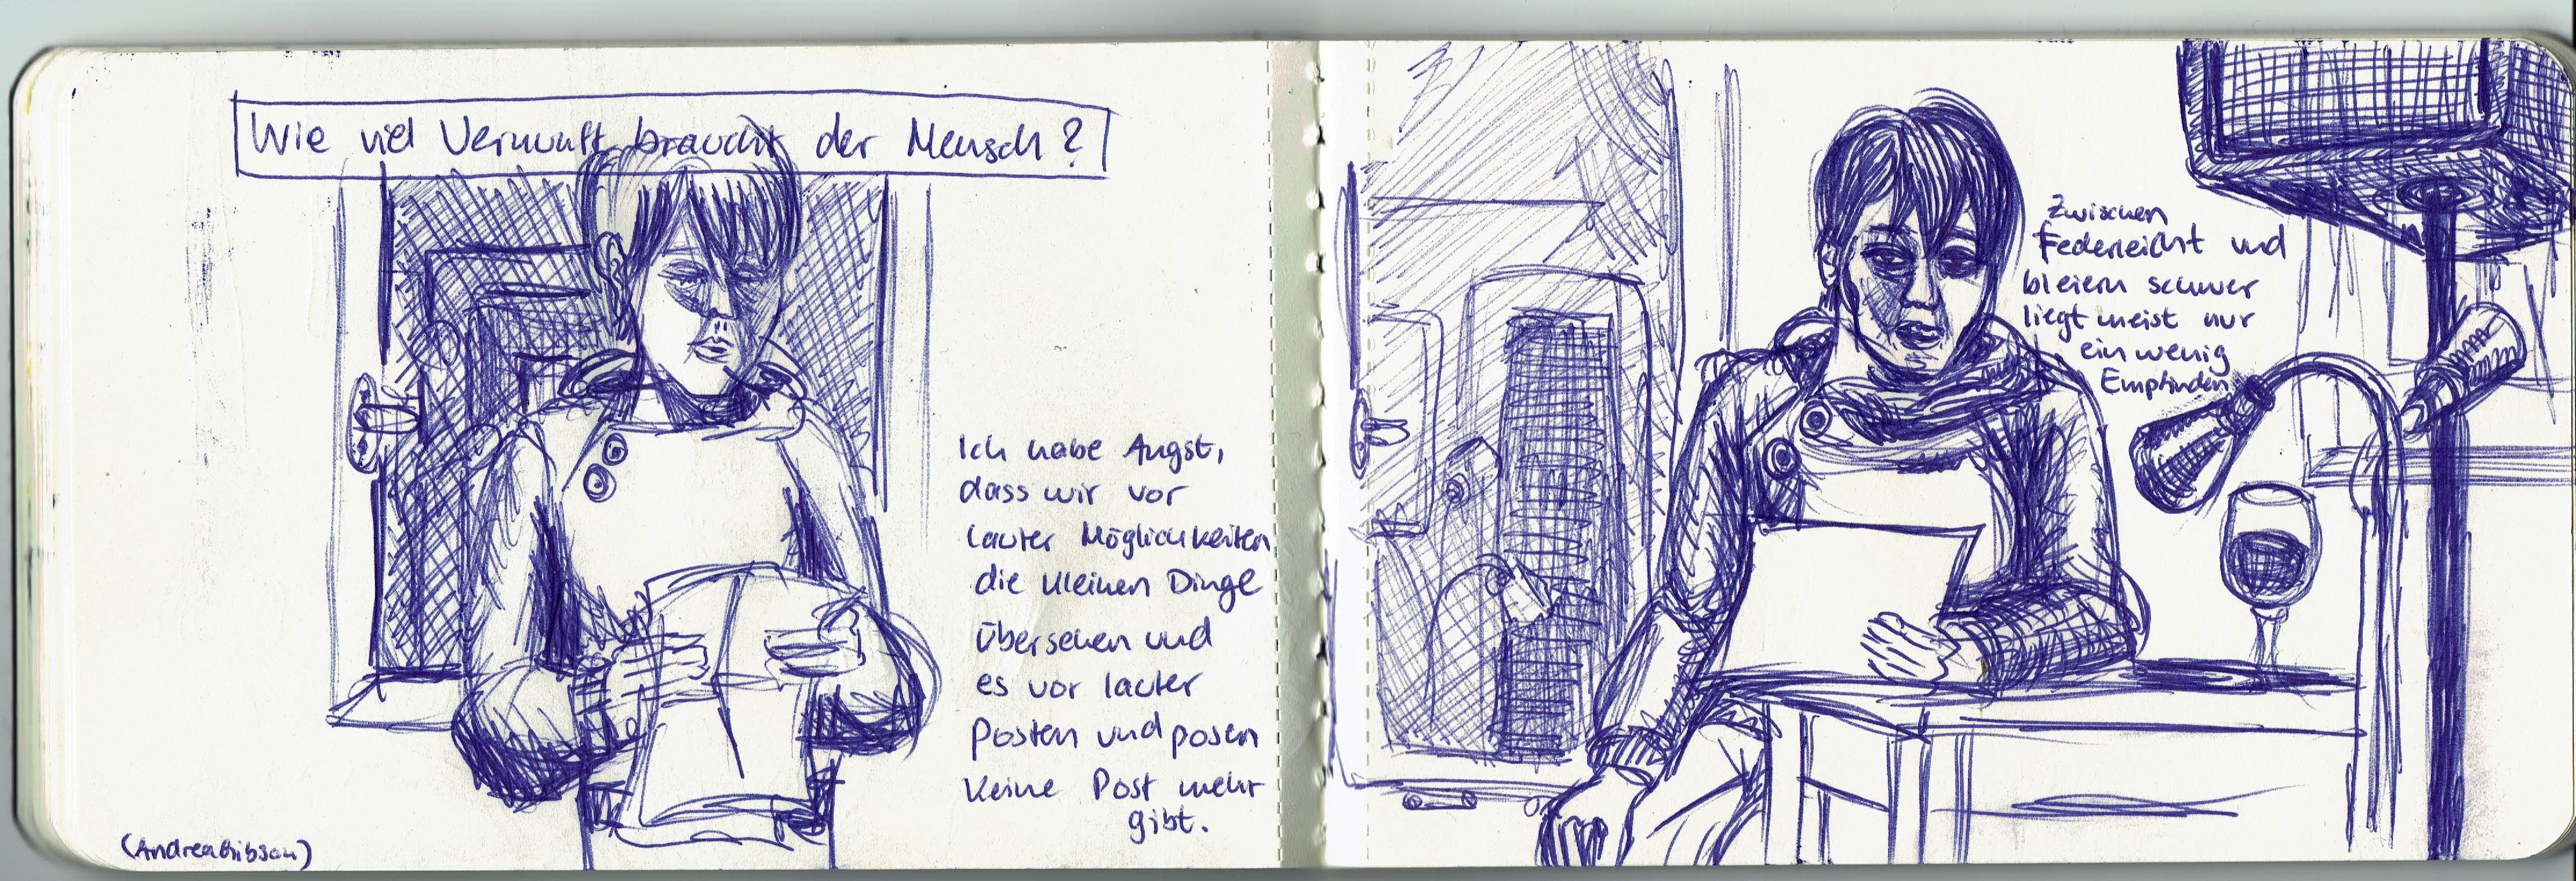 Wie viel Vernunft braucht der Mensch?
Ich habe Angst,
dass wir vor
lauter Möglichkeiten
die kleinen Dinge
übersehen und
es vor lauter
Posten und posen
keine Post mehr
gibt.
(Andrea Gibson)
Zwischen
Federleicht und
bleiern schwer
liegt meist nur
ein wenig
Empfinden